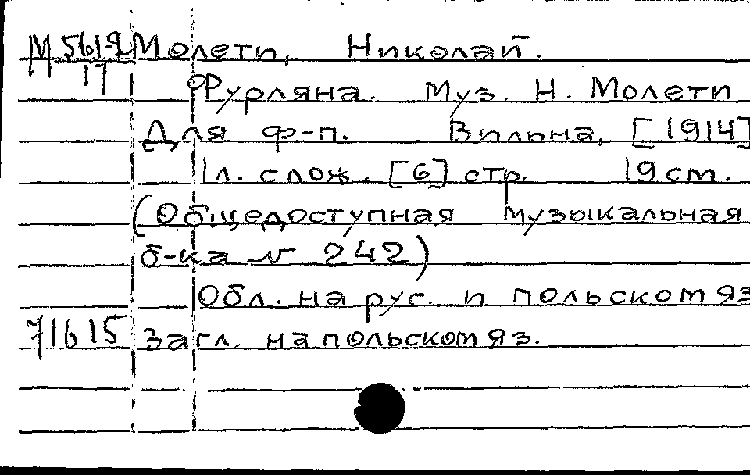 М 5619 Молети, Николай.
17 Фурляна. Муз. Н. Молети
Для ф-п. Вильна, [1914]
1л. слож. [6] стр. 19 см.
(Общедоступная музыкальная
б-ка № 242)
Обл. на рус. и польском яз
71615 Загл. на польском яз.